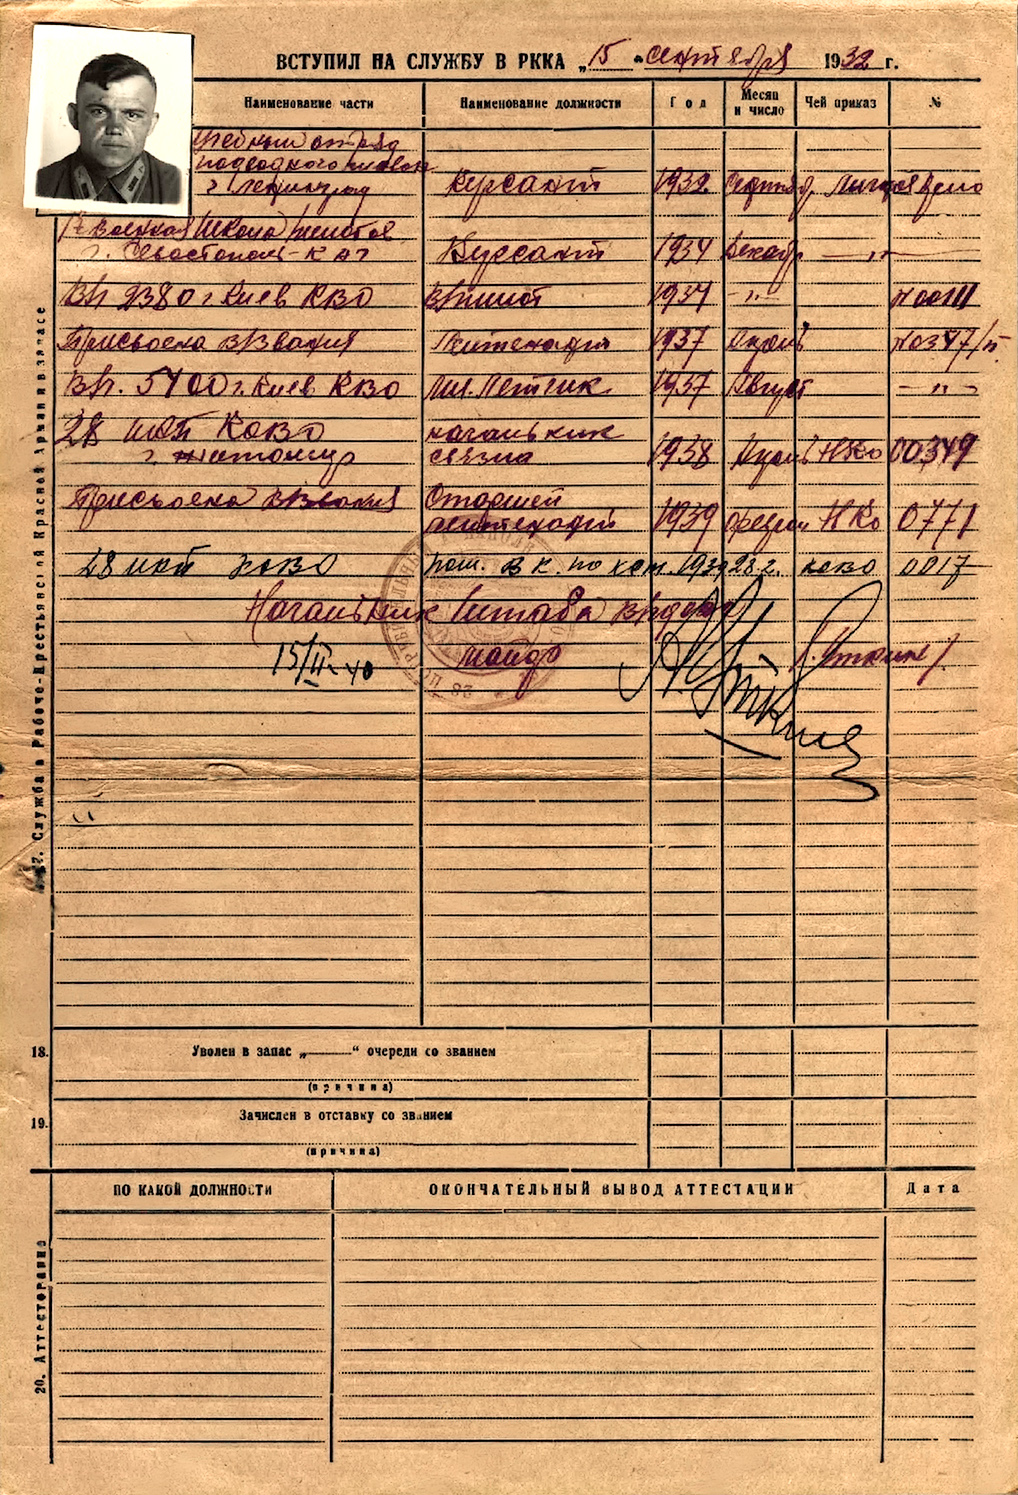 ВСТУПИЛ НА СЛУЖБУ В РККА „15“ сентября 1932 г.
Наименование части Наименование должности Год Месяц и число Чей приказ №
Учебный отряд
подводного плаван
г. Ленинград Курсант 1932 Сентябр Личное Дело
военная Школа Пилотов
г. Севастополь - К А Курсант 1934 Декабр — „ —
В/ч 2380 г. Киев КВО 1937 - „ - №00111
Присвоено в/звания Лейтенант 1937 №0347/п
В/ч. 5400 г. Киев КВО Мл. Летчик 1937 Август - „ -
28 КОВО начальник
г. Житомир связи 1938 НКО 00349
Присвоено в/звания Старший
лейтенант 1939 феврал НКО 0771
28 КОВО пом. в к. по 1939 ково 0017
Начальник Штаба
15/II-40 майор
17. Служба в Рабоче-Крестьянской Красной Армии и в запасе
18. Уволен в запас „———“ очереди со званием
(причина)
19. Зачислен в отставку со званием
(причина)
ПО КАКОЙ ДОЛЖНОСТИ ОКОНЧАТЕЛЬНЫЙ ВЫВОД АТТЕСТАЦИИ Дата
20. Аттестование